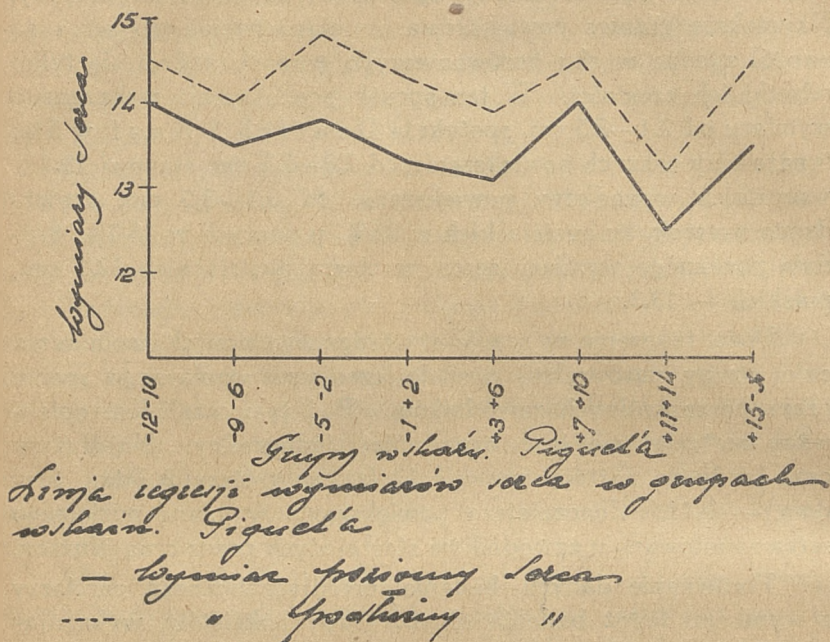 15
14
13
12
Wymiary serca
-12-10
-9-6
-5-2
-1+2
+3+6
+7+10
+11+14
+15-x
Grupy wskaźn. Pigueta'a
Linja regresji wymiarów serca w grupach
wskaźn. Piguet'a
— Wymiar poziomy serca
---- " podłużny "